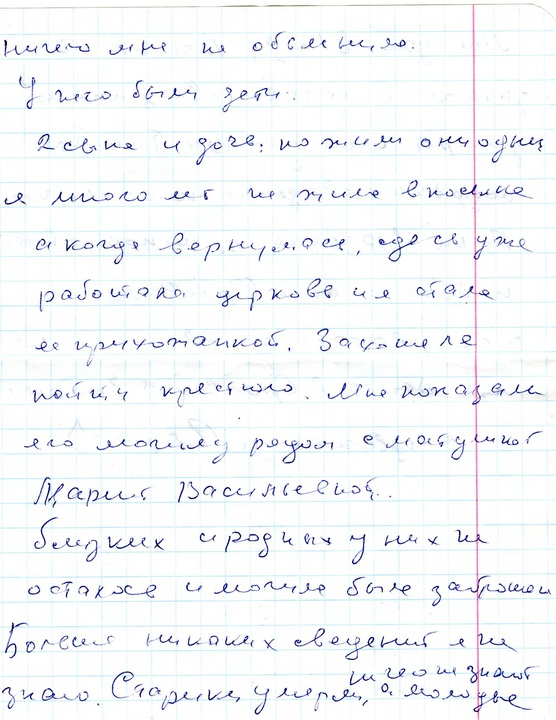 ничего мне не объяснила.
У него были дети.
2 сына и дочь, но жили они одни
я много лет не жила в поселке
а когда вернулась, здесь уже
работала церковь и я стала
ее прихожанкой. Захотела
найти крестного. Мне показали
его могилу рядом с матушкой
Марией Васильевной.
близких и родных у них не
осталось и могила была заброшен
Больше никаких сведений я не
ничего не знают
знаю. Старики умерли, а молодые